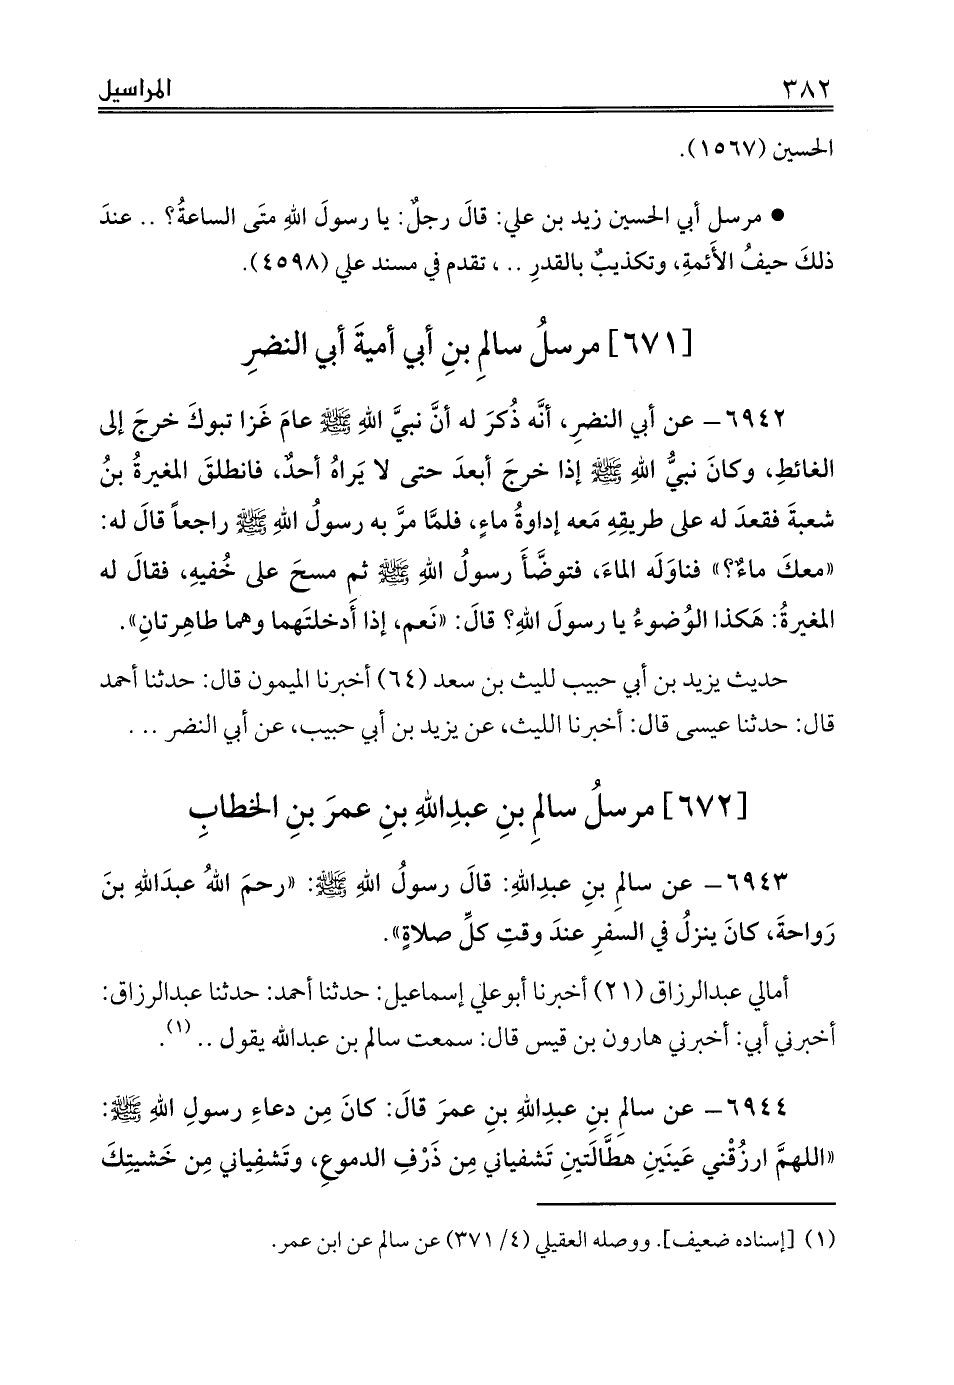 ٣٨٢ المراسيل
الحسين (١٥٦٧).
● مرسل أبي الحسين زيد بن علي: قالَ رجلٌ: يا رسولَ اللهِ متَى الساعةُ؟ .. عندَ
ذلكَ حيفُ الأَئمةِ، وتكذيبٌ بالقدرِ .. ، تقدم في مسند علي (٤٥٩٨).
[٦٧١] مرسلُ سالمِ بنِ أبي أميةَ أبي النضرِ
٦٩٤٢- عن أبي النضرِ، أنَّه ذُكرَ له أنَّ نبيَّ اللهِ ﷺ عامَ غَزا تبوكَ خرجَ إلى
الغائطِ، وكانَ نبيُّ اللهِ ﷺ إذا خرجَ أبعدَ حتى لا يَراهُ أحدٌ، فانطلقَ المغيرةُ بنُ
شعبةَ فقعدَ له على طريقِهِ مَعه إداوةُ ماءٍ، فلمَّا مرَّ به رسولُ اللهِ ﷺ راجعاً قالَ له:
«معكَ ماءٌ؟» فناوَلَه الماءَ، فتوضَّأَ رسولُ اللهِ ﷺ ثم مسحَ على خُفيهِ، فقالَ له
المغيرةُ: هَكذا الوُضوءُ يا رسولَ اللهِ؟ قالَ: «نَعم، إذا أَدخلتَهما وهما طاهِرتانِ».
حديث يزيد بن أبي حبيب لليث بن سعد (٦٤) أخبرنا الميمون قال: حدثنا أحمد
قال: حدثنا عيسى قال: أخبرنا الليث، عن يزيد بن أبي حبيب، عن أبي النضر .. .
[٦٧٢] مرسلُ سالمِ بنِ عبدِاللهِ بنِ عمرَ بنِ الخطابِ
٦٩٤٣- عن سالمِ بنِ عبدِاللهِ: قالَ رسولُ اللهِ ﷺ: «رحمَ اللهُ عبدَاللهِ بنَ
رَواحةَ، كانَ ينزلُ في السفرِ عندَ وقتِ كلِّ صلاةٍ».
أمالي عبدالرزاق (٢١) أخبرنا أبوعلي إسماعيل: حدثنا أحمد: حدثنا عبدالرزاق:
أخبرني أبي: أخبرني هارون بن قيس قال: سمعت سالم بن عبدالله يقول .. (١).
٦٩٤٤- عن سالمِ بنِ عبدِاللهِ بنِ عمرَ قالَ: كانَ مِن دعاءِ رسولِ اللهِ ﷺ:
«اللهمَّ ارزُقْني عَينَينِ هطَّالَتينِ تَشفياني مِن ذَرْفِ الدموعِ، وتَشفِياني مِن خَشيتِكَ
(١) [إسناده ضعيف]. ووصله العقيلي (٤/ ٣٧١) عن سالم عن ابن عمر.